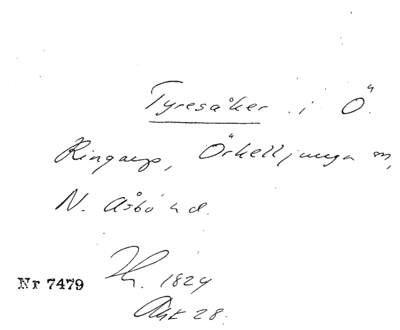 Tyresåker i Ö.
Ringarp, Örkelljunga sn,
N. Åsbo hd.
1824
Akt 28.
Nr 7479